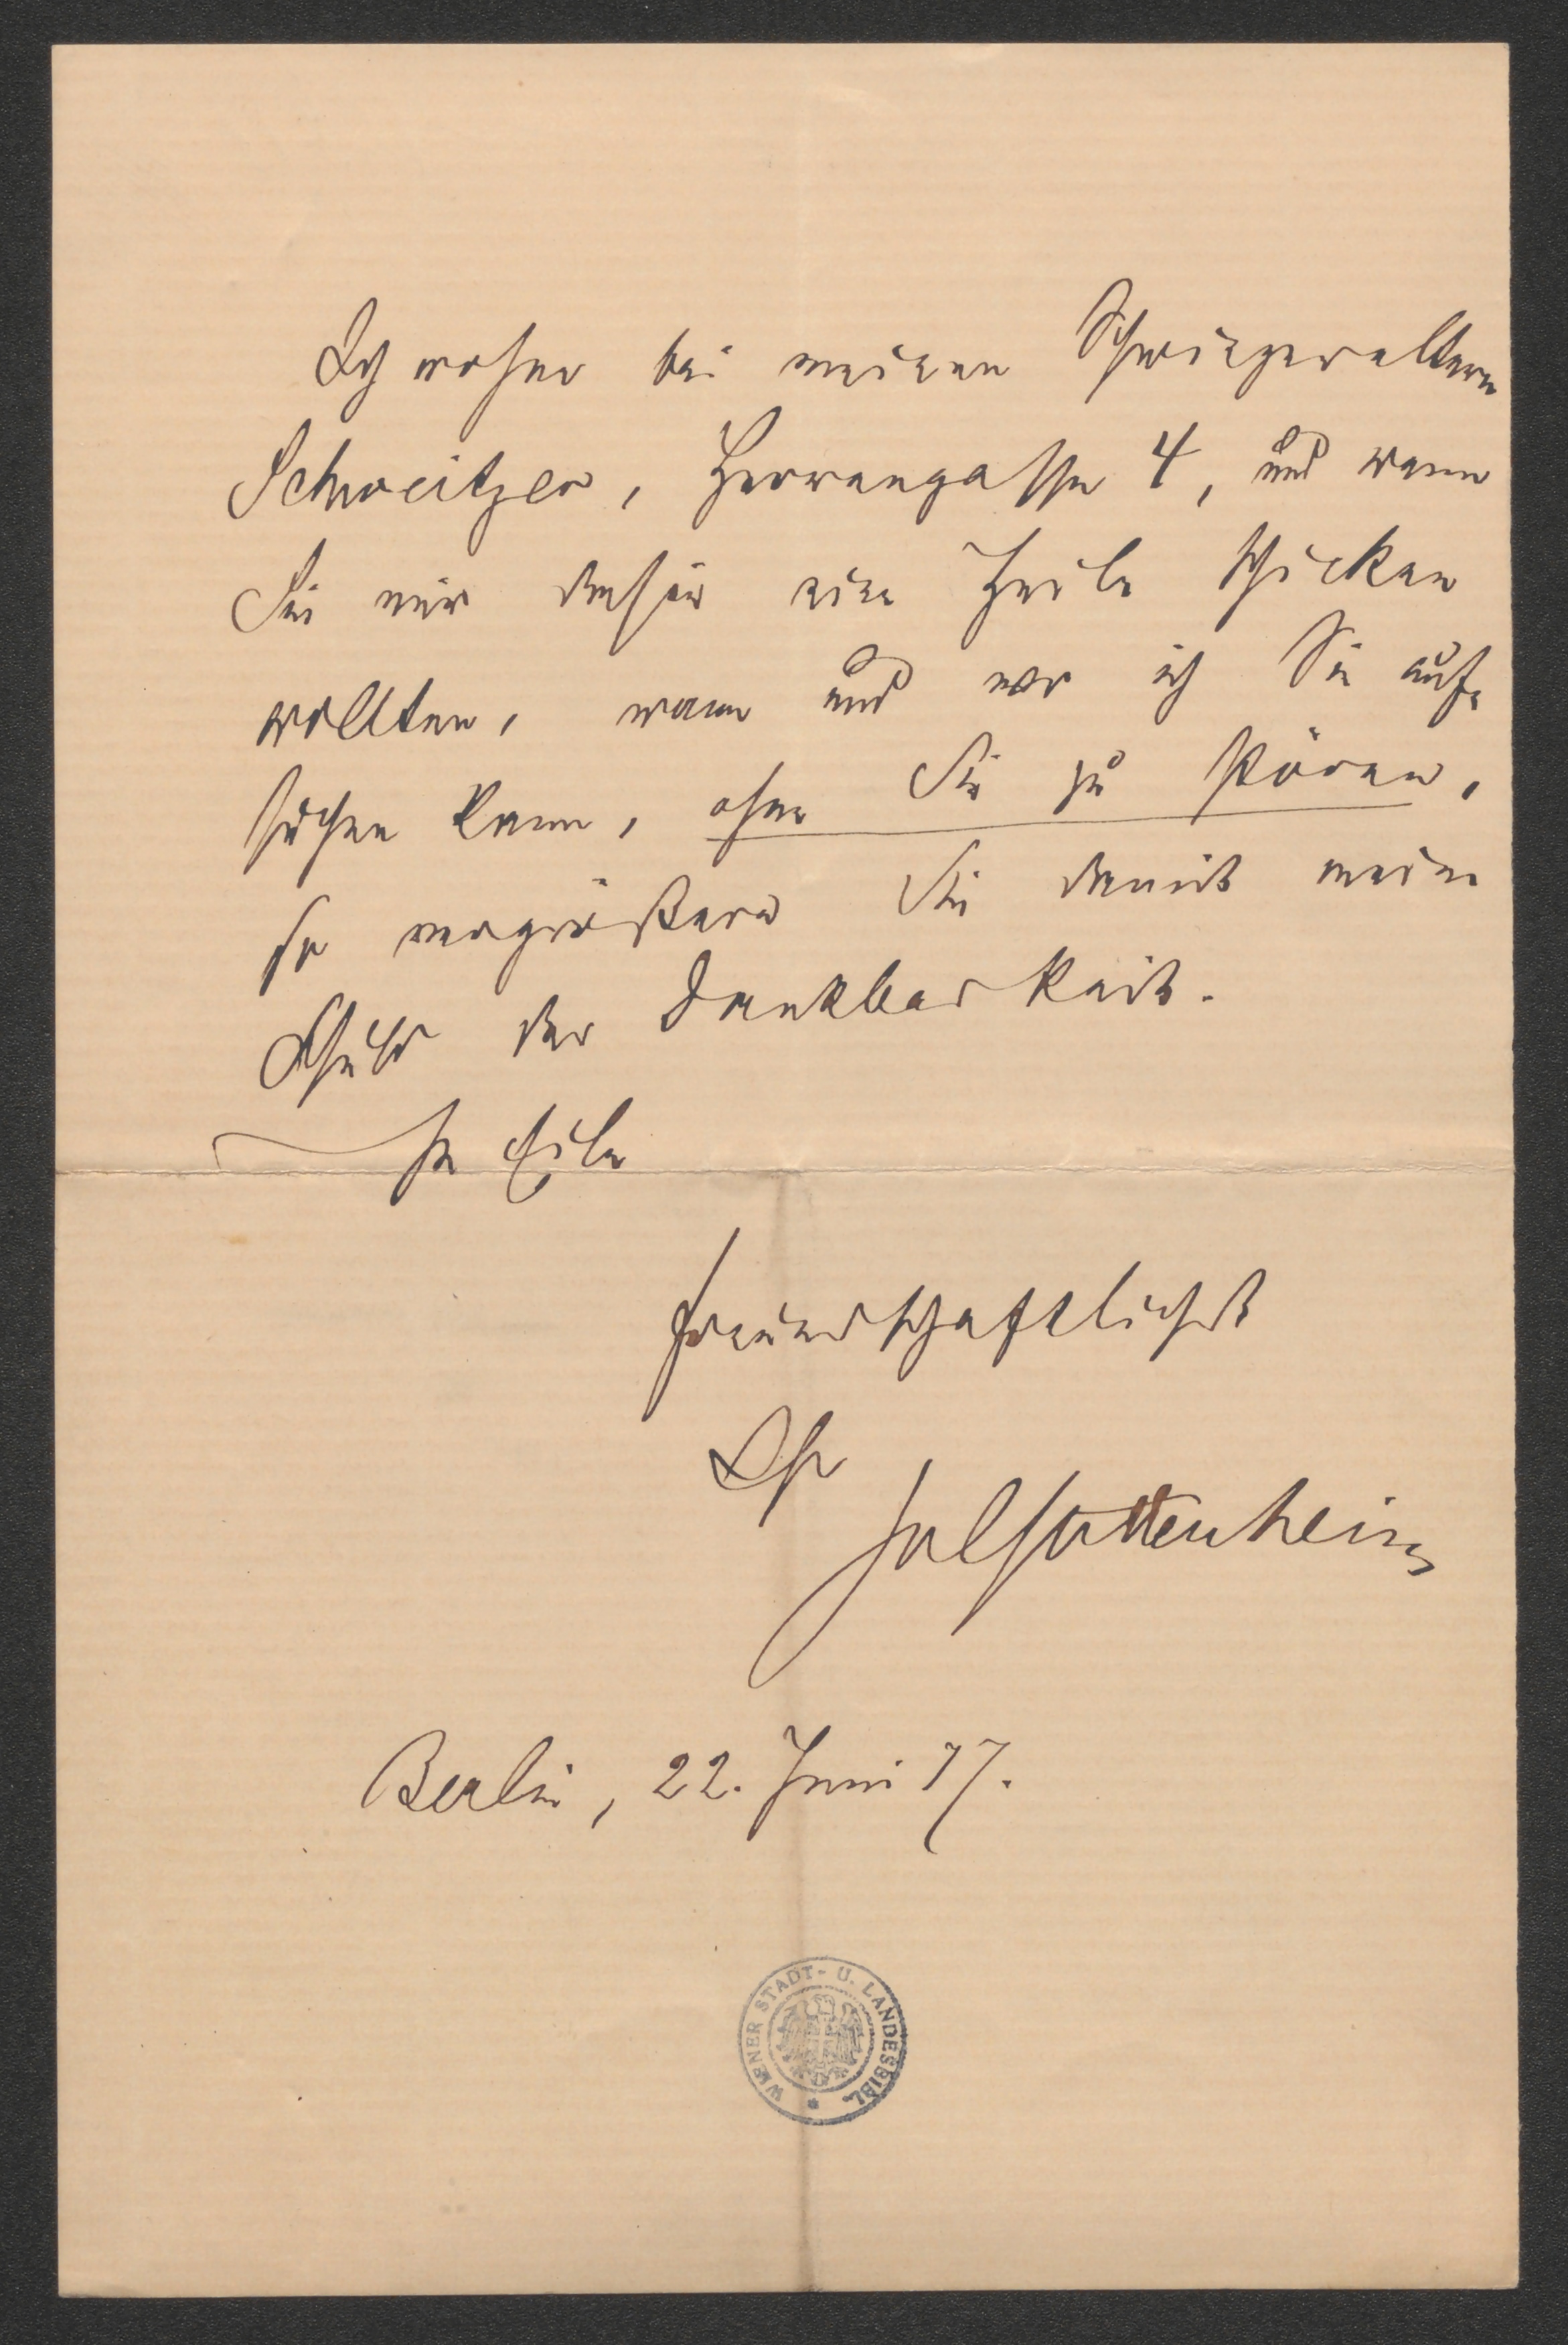 Ich wohne bei meinen Schwiegereltern
Schweitzer, Herrengasse 4, und wenn
Sie mir dahin eine Zeile schicken
wollten, wann und wo ich Sie auf-
suchen kann, ohne Sie zu stören,
so vergrößern Sie damit meine
Schuld der Dankbarkeit.
In Eile
freundschaftlichst
Ihr
Berlin, 22. Juni 77.
WIENER STADT- U. LANDESBIBL.